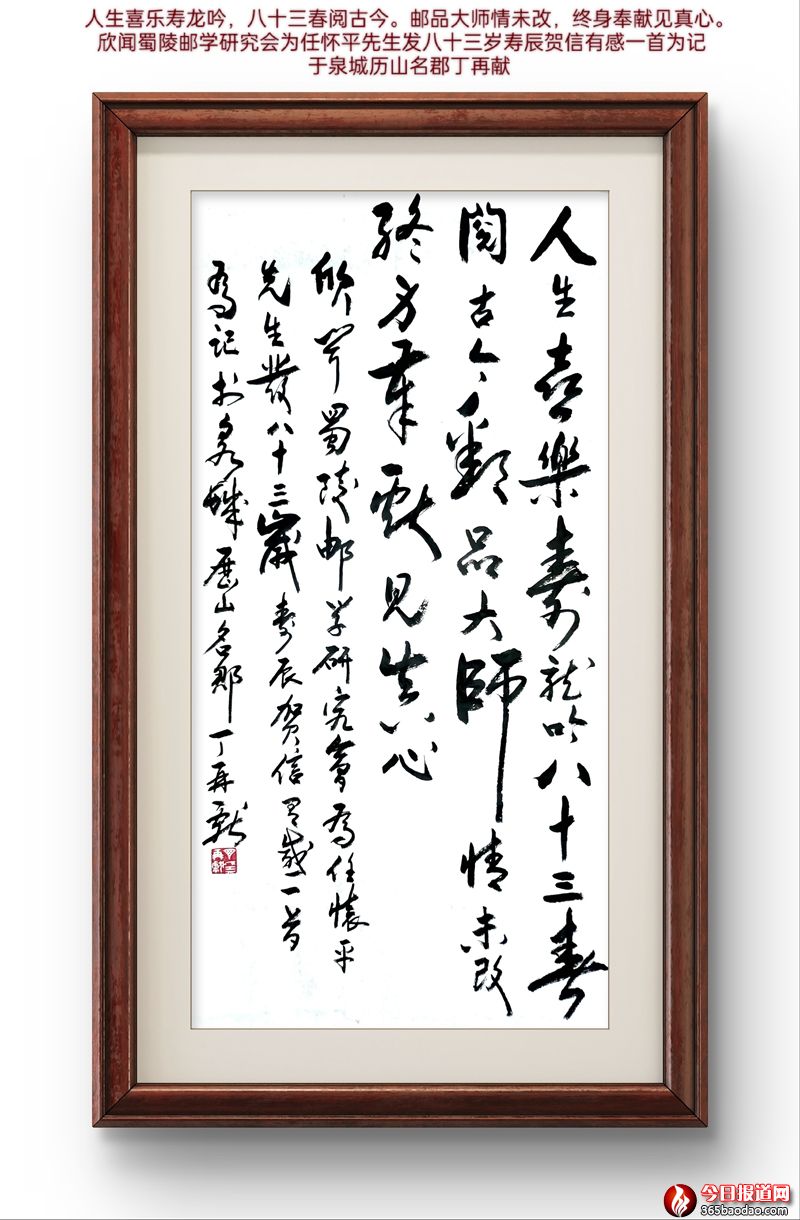 人生喜乐寿龙吟，八十三春阅古今。邮品大师情未改，终身奉献见真心。
欣闻蜀陵邮学研究会为任怀平先生发八十三岁寿辰贺信有感一首为记
于泉城历山名郡丁再献
人生喜樂壽龙吟八十三春
阅古今郵品大師情未改
终身奉献見真心
欣闻蜀陵邮学研究會為任懷平
先生發八十三歲壽辰贺信有感一首
為记於泉城歷山名郡丁再献
今日报道网
365baodao.com